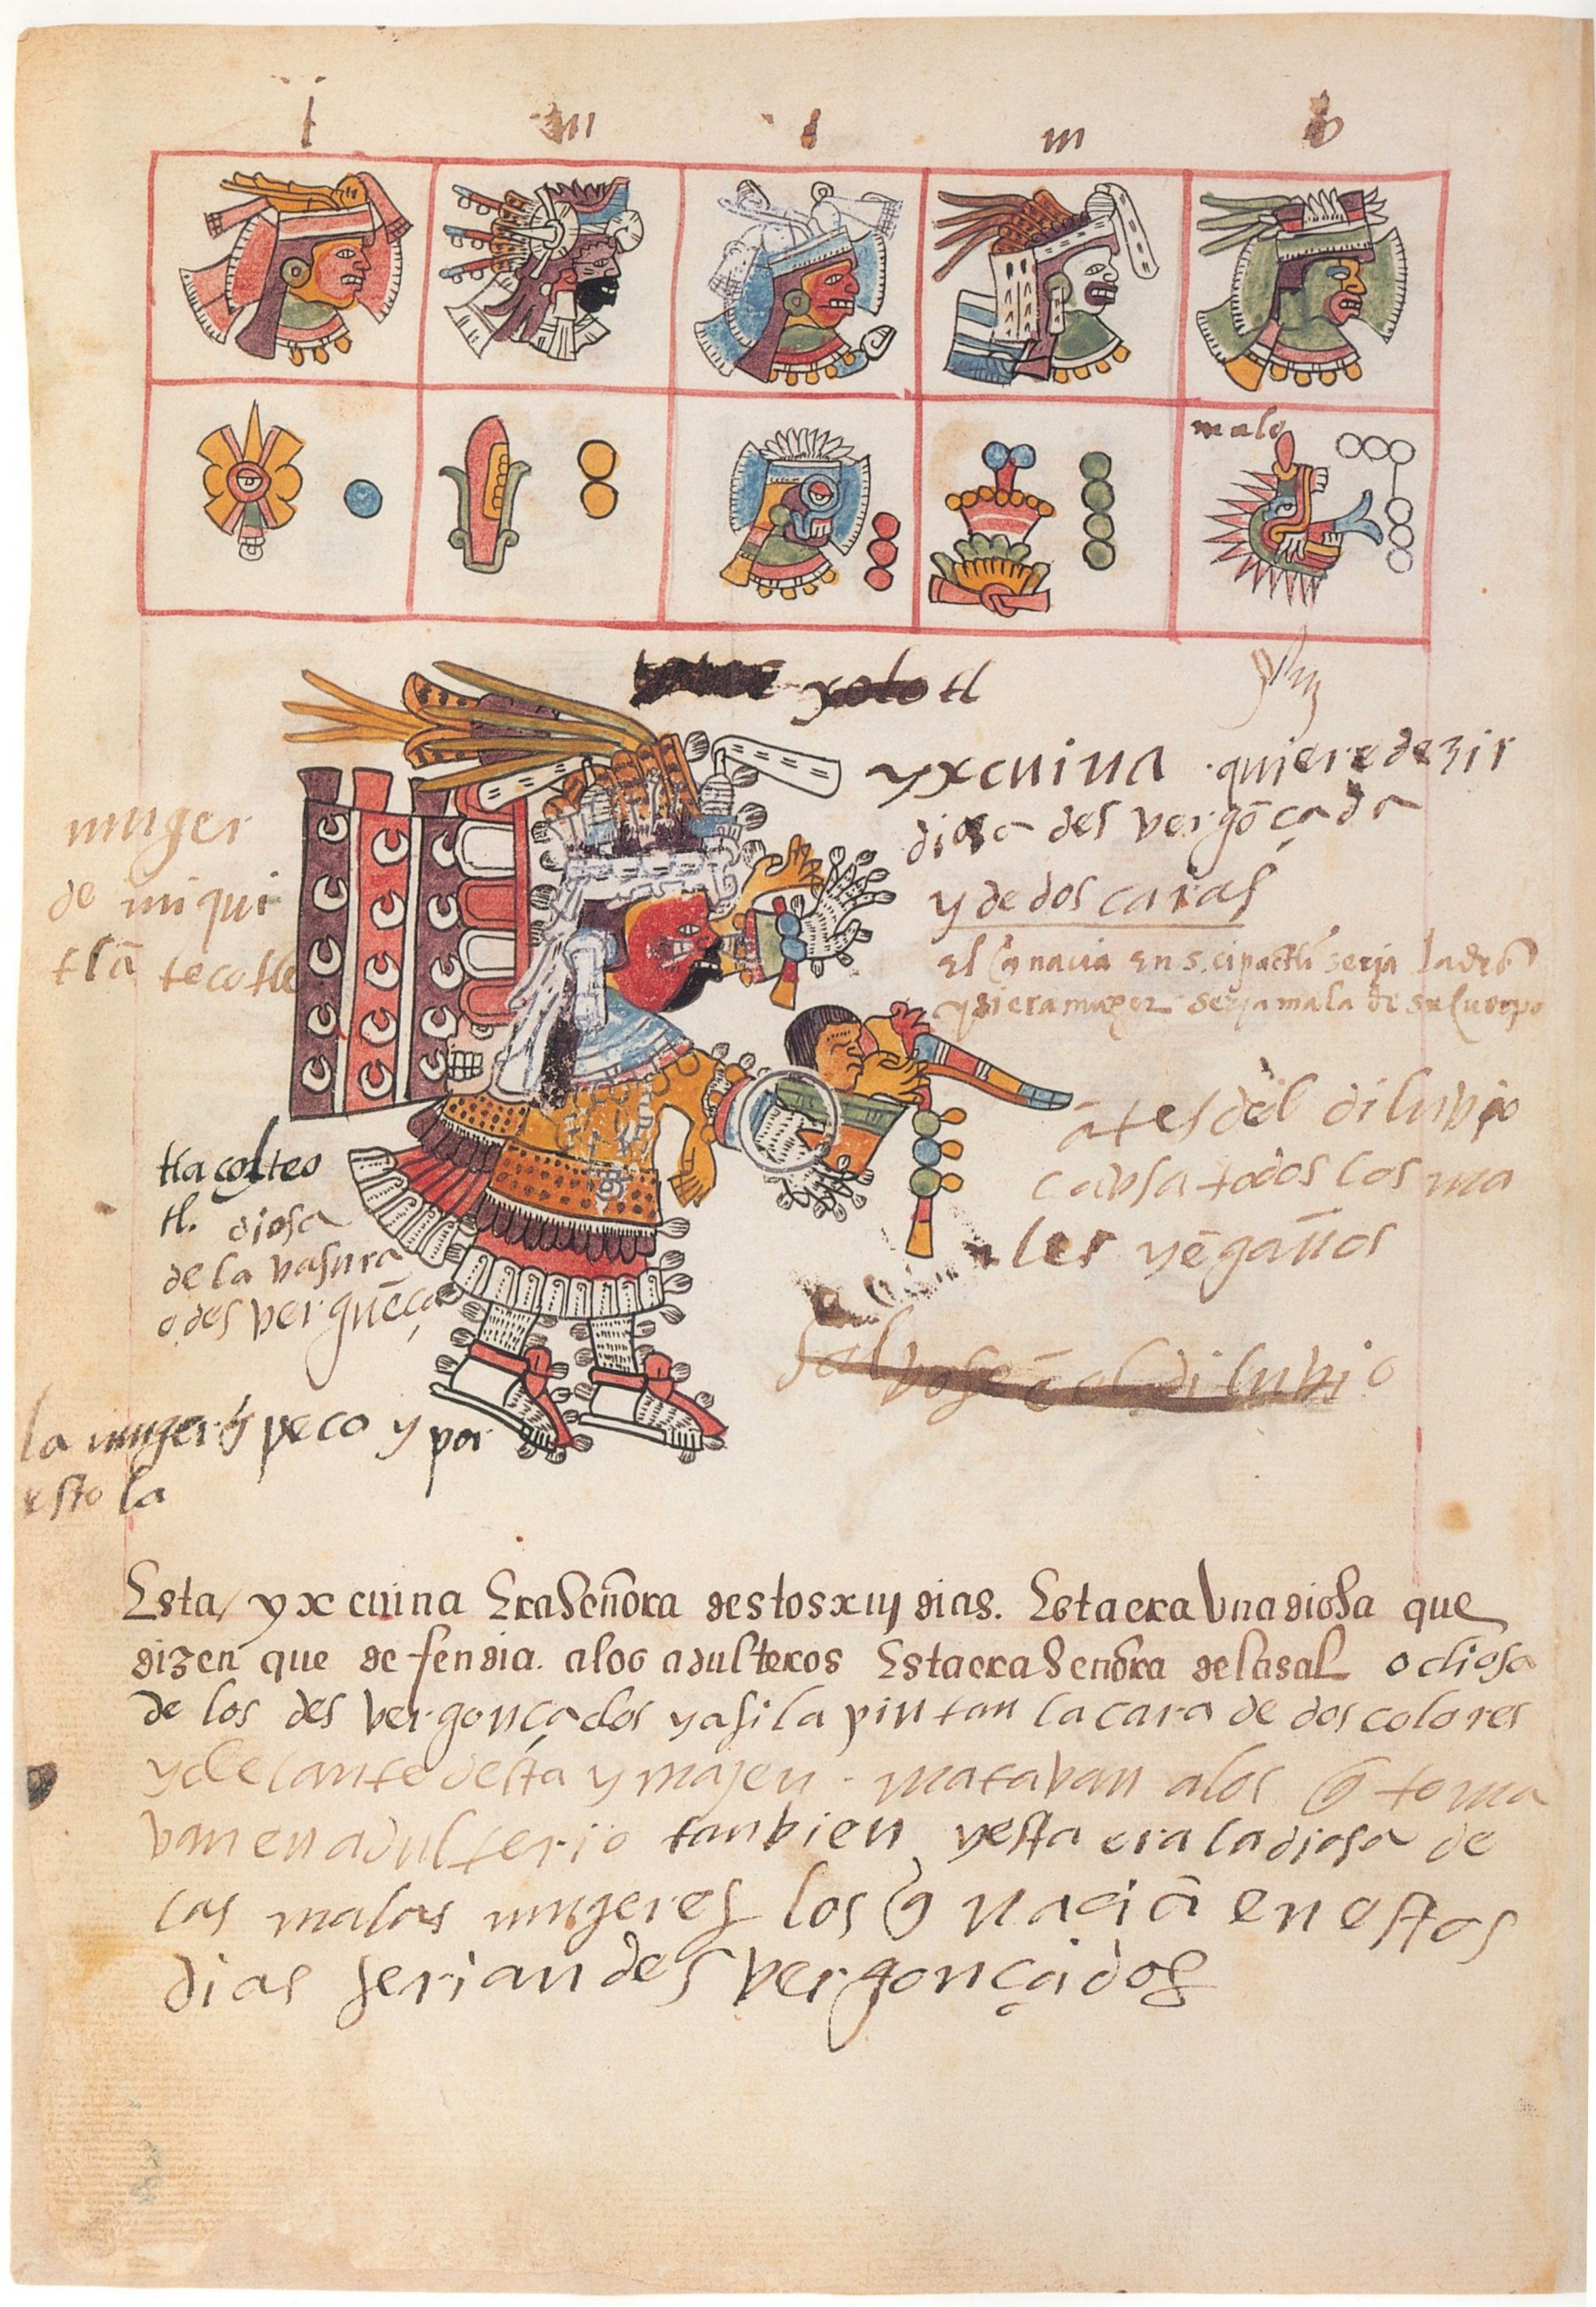 t m t m b
malo
xolotl
yxcuina · quiere dezir
diosa desvergōçada
y de dos caras
el q̄ nacia en 5. cipactli seria ladrō
y si era muger seria mala de su cuerpo
ātes del diluvio
cavsa todos los ma
les y ēgaños
salvose ē el diluvio
muger
de miqui
tlā tecotle
tlaçolteo
tl. diosa
de la vasura
o desverguēça
la muger q̄ peco y por
esto la
Esta yxcuina Era señora destos xiij dias. Esta era vna diosa que
dizen que defendia. alos adulteros Esta era señora dela sal o diosa
de los desvergonçados y asi la pintan la cara de dos colores
y delante desta ymajen · matavan alos q̄ toma
van en adulterio tanbien y esta era la diosa de
las malas mugeres los q̄ naciā en estos
dias serian desvergonçados